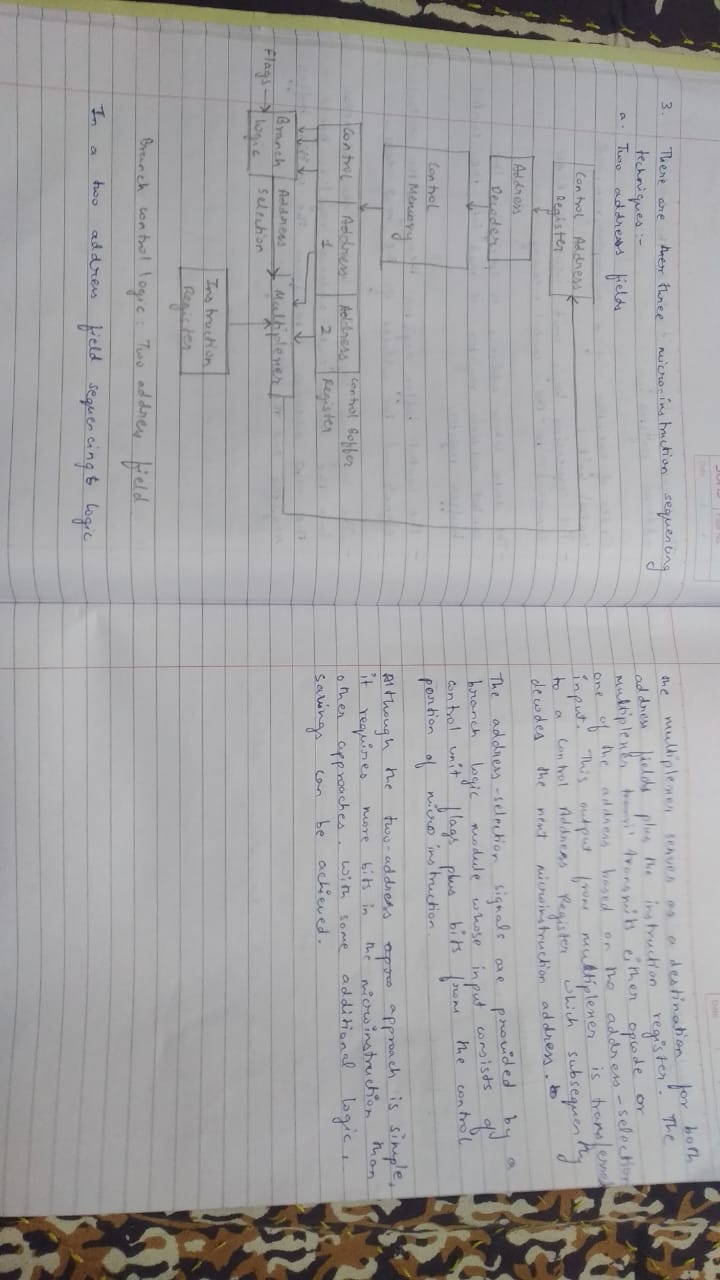 3. There are ther three micro-instruction sequencing
techniques:-
a. Two address fields
Control Address
Register
Address
Decoder
Control
Memory
Control
Address
1
Address
2
Control Buffer
Register
Flags
Branch
logic
Address
Selection
Multiplexer
Instruction
Register
Branch control logic: Two address field
In a two address field sequencing logic
the multiplexer serves as a destination for both
address fields plus the instruction register. The
multiplexer transmits either opcode or
one of the address based on the address-selection
input. This output from multiplexer is transferred
to a Control Address Register which subsequently
decodes the next microinstruction address.
The address-selection signals are provided by a
branch logic module whose input consists of
control unit flags plus bits from the control
portion of micro instruction.
Although the two-address approach is simple,
it requires more bits in the microinstruction than
other approaches. With some additional logic,
savings can be achieved.
Date
Date